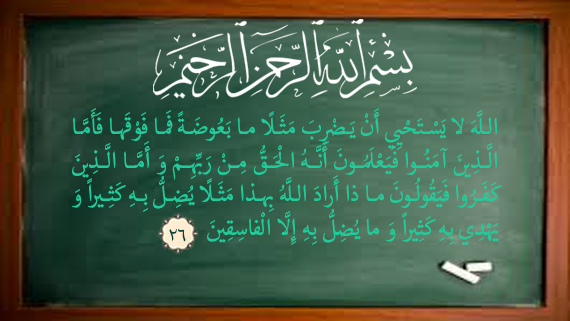 بِسْمِ ٱللَّهِ ٱلرَّحْمَٰنِ ٱلرَّحِيمِ
اللَّهَ لا يَسْتَحْيِي أَنْ يَضْرِبَ مَثَلًا ما بَعُوضَةً فَما فَوْقَها فَأَمَّا
الَّذِينَ آمَنُوا فَيَعْلَمُونَ أَنَّهُ الْحَقُّ مِنْ رَبِّهِمْ وَ أَمَّا الَّذِينَ
كَفَرُوا فَيَقُولُونَ ما ذا أَرادَ اللَّهُ بِهذا مَثَلًا يُضِلُّ بِهِ كَثِيراً وَ
يَهْدِي بِهِ كَثِيراً وَ ما يُضِلُّ بِهِ إِلَّا الْفاسِقِينَ ٢٦